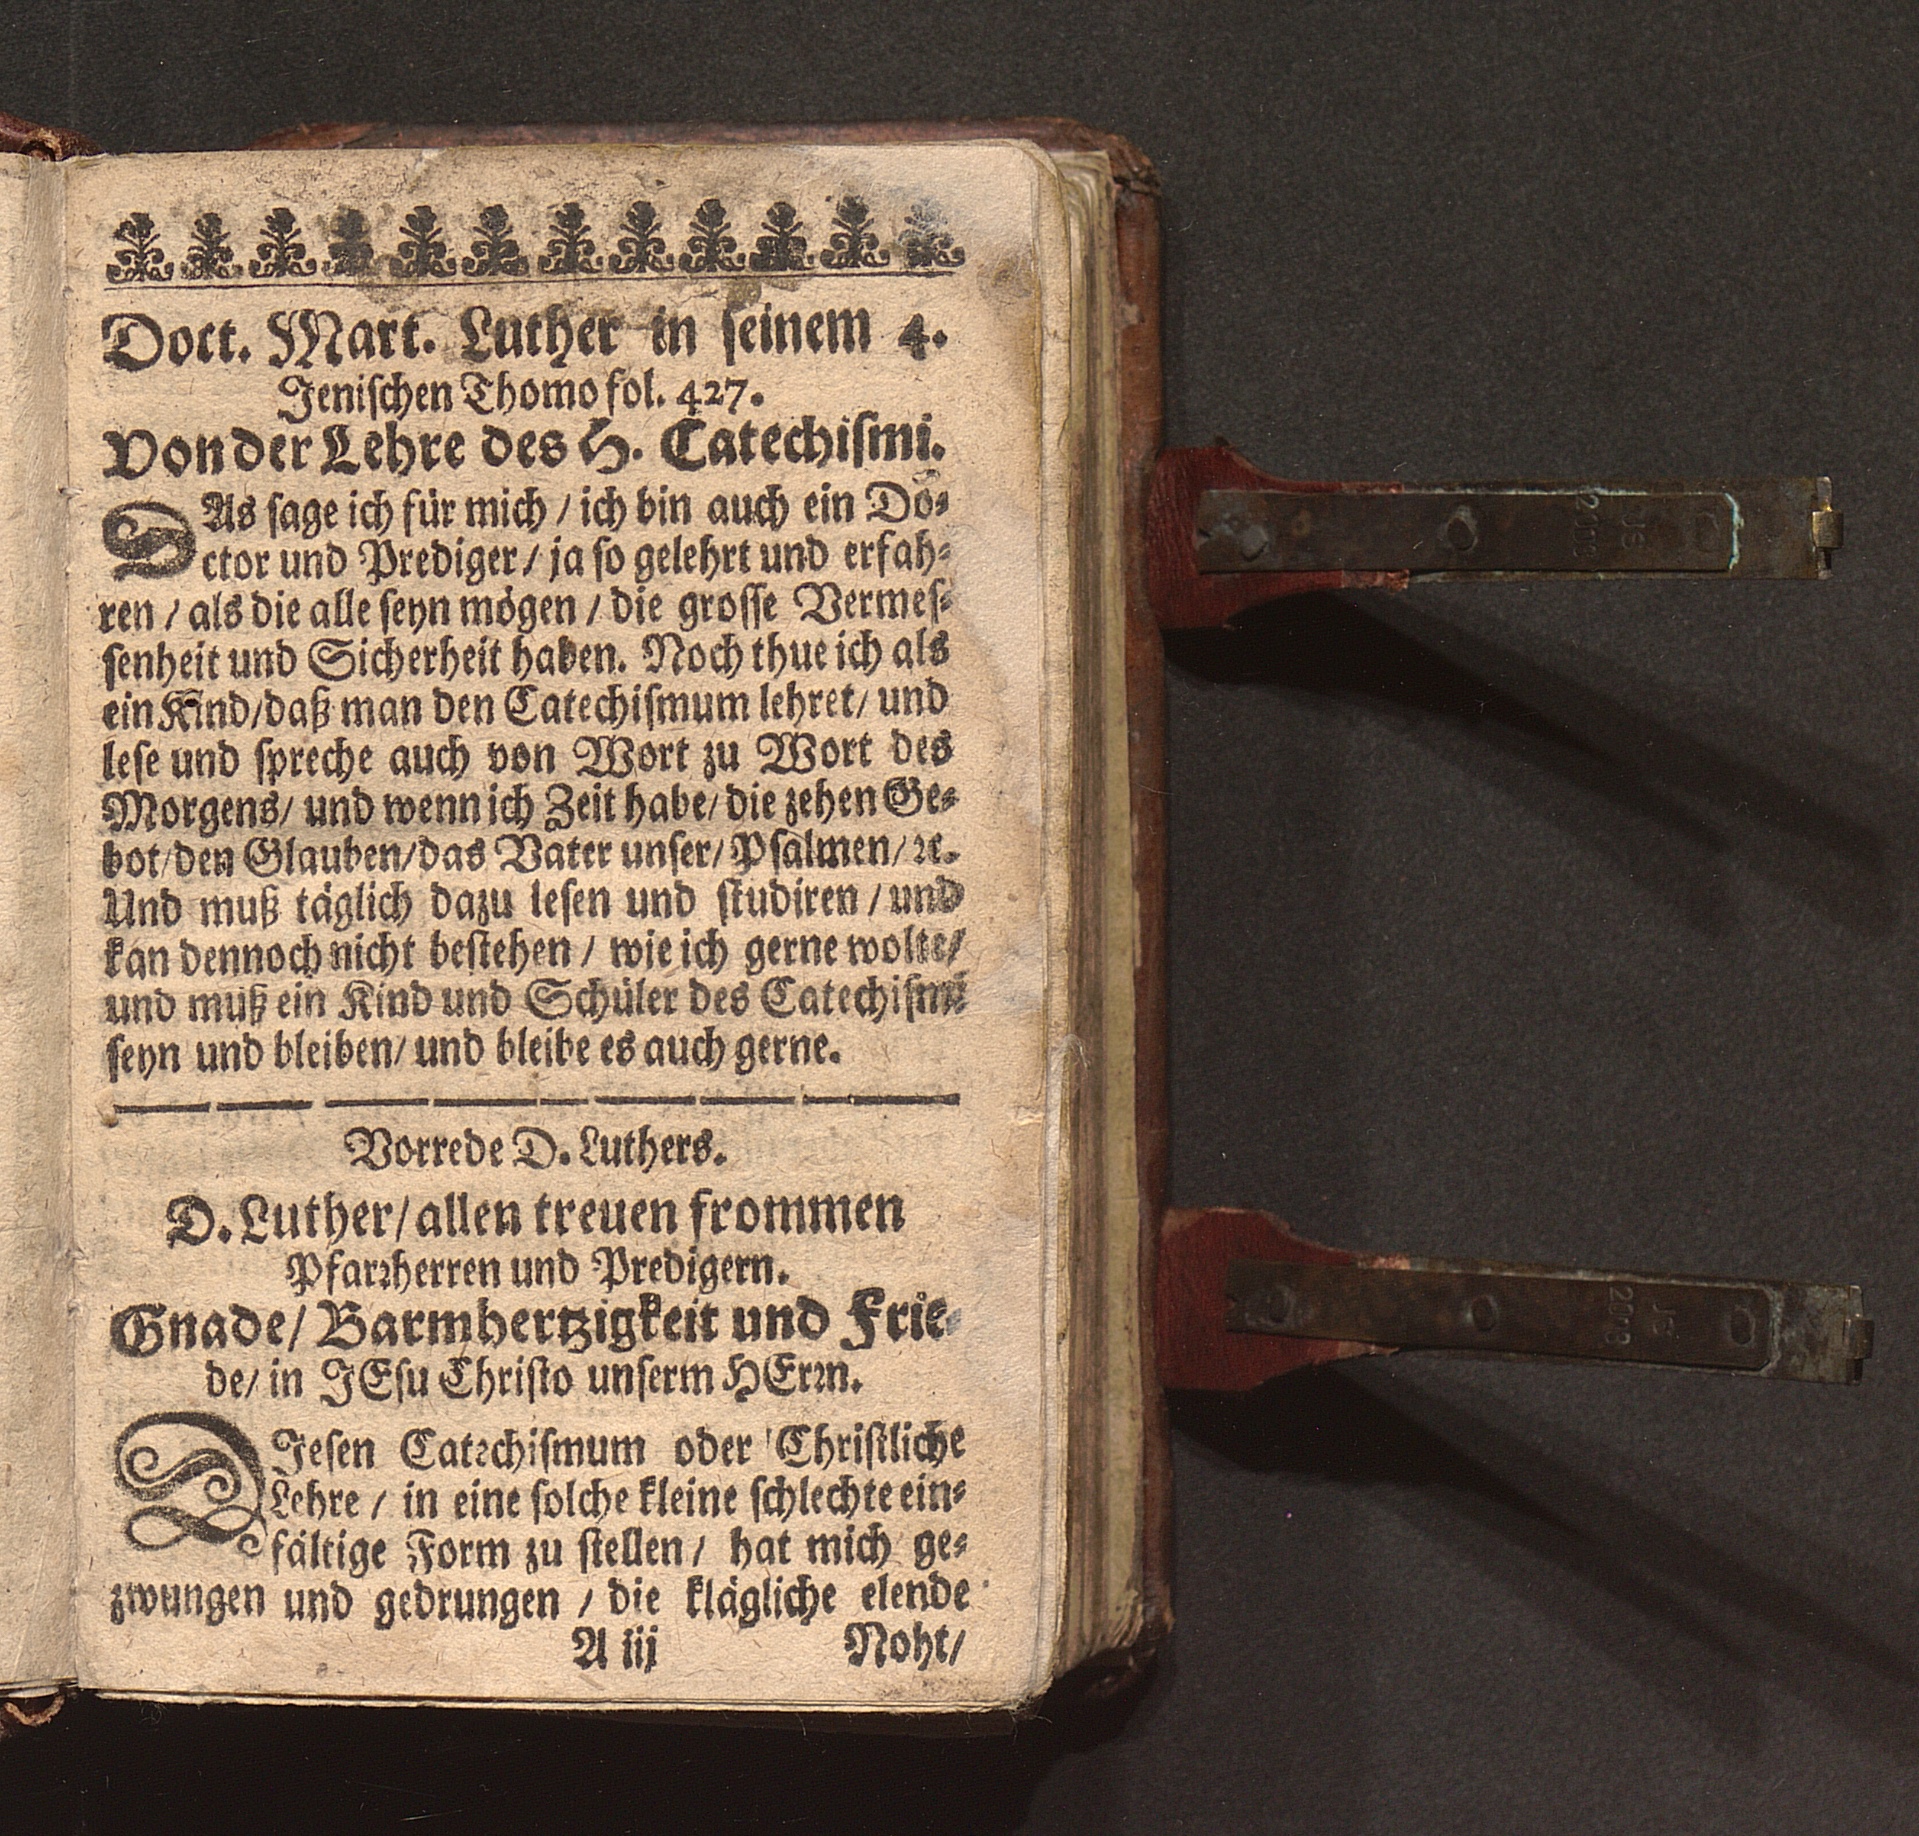 Doct. Mart. Luther in seinem 4.
Jenischen Thomo fol. 427.
Von der Lehre des H. Catechismi.
DAs sage ich für mich / ich bin auch ein Do-
ctor und Prediger / ja so gelehrt und erfah-
ren / als die alle seyn mögen / die grosse Vermes-
senheit und Sicherheit haben. Noch thue ich als
ein Kind/daß man den Catechismum lehret/ und
lese und spreche auch von Wort zu Wort des
Morgens/ und wenn ich Zeit habe/ die zehen Ge-
bot/den Glauben/das Vater unser/ Psalmen/ ꝛc.
Und muß täglich dazu lesen und studiren / und
kan dennoch nicht bestehen / wie ich gerne wolte/
und muß ein Kind und Schüler des Catechismi
seyn und bleiben/ und bleibe es auch gerne.
Vorrede D. Luthers.
D. Luther/ allen treuen frommen
Pfarꝛherren und Predigern.
Gnade/ Barmhertzigkeit und Frie-
de/ in JEsu Christo unserm HErꝛn.
DIesen Catechismum oder Christliche
Lehre / in eine solche kleine schlechte ein-
fältige Form zu stellen / hat mich ge-
zwungen und gedrungen / die klägliche elende
A iij Noht/
JG
2008
JG
2008